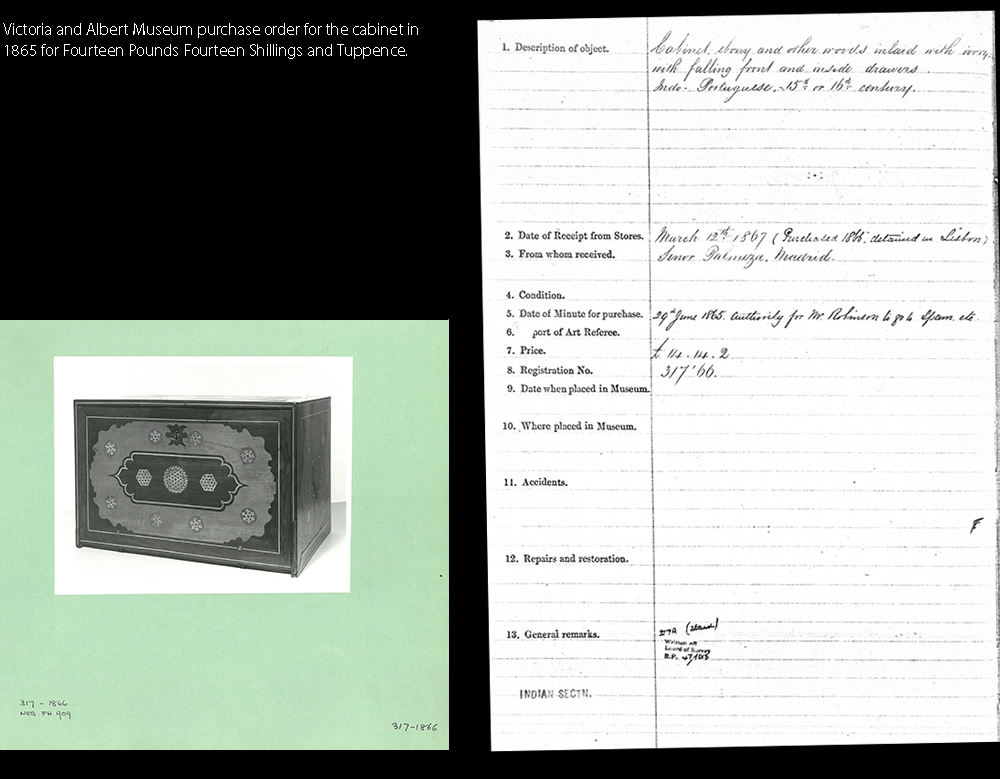 Victoria and Albert Museum purchase order for the cabinet in
1865 for Fourteen Pounds Fourteen Shillings and Tuppence.
1. Description of object.
Cabinet, ebony and other woods inlaid with ivory,
with falling front and inside drawers.
Indo-Portuguese, 15th or 16th century.
2. Date of Receipt from Stores. March 12th 1867 (Purchased 1866, detained in Lisbon)
3. From whom received. Senor Madrid.
4. Condition.
5. Date of Minute for purchase. 29th June 1865. Authority for Mr. Robinson to go to Spain etc
6. port of Art Referee.
7. Price. £ 14.14.2
8. Registration No. 317'66.
9. Date when placed in Museum.
10. Where placed in Museum.
11. Accidents.
12. Repairs and restoration.
13. General remarks.
(stand)
Written off
Board of Survey
R.P.
INDIAN SECTN.
317 - 1866
NEG. FH 909
317-1866